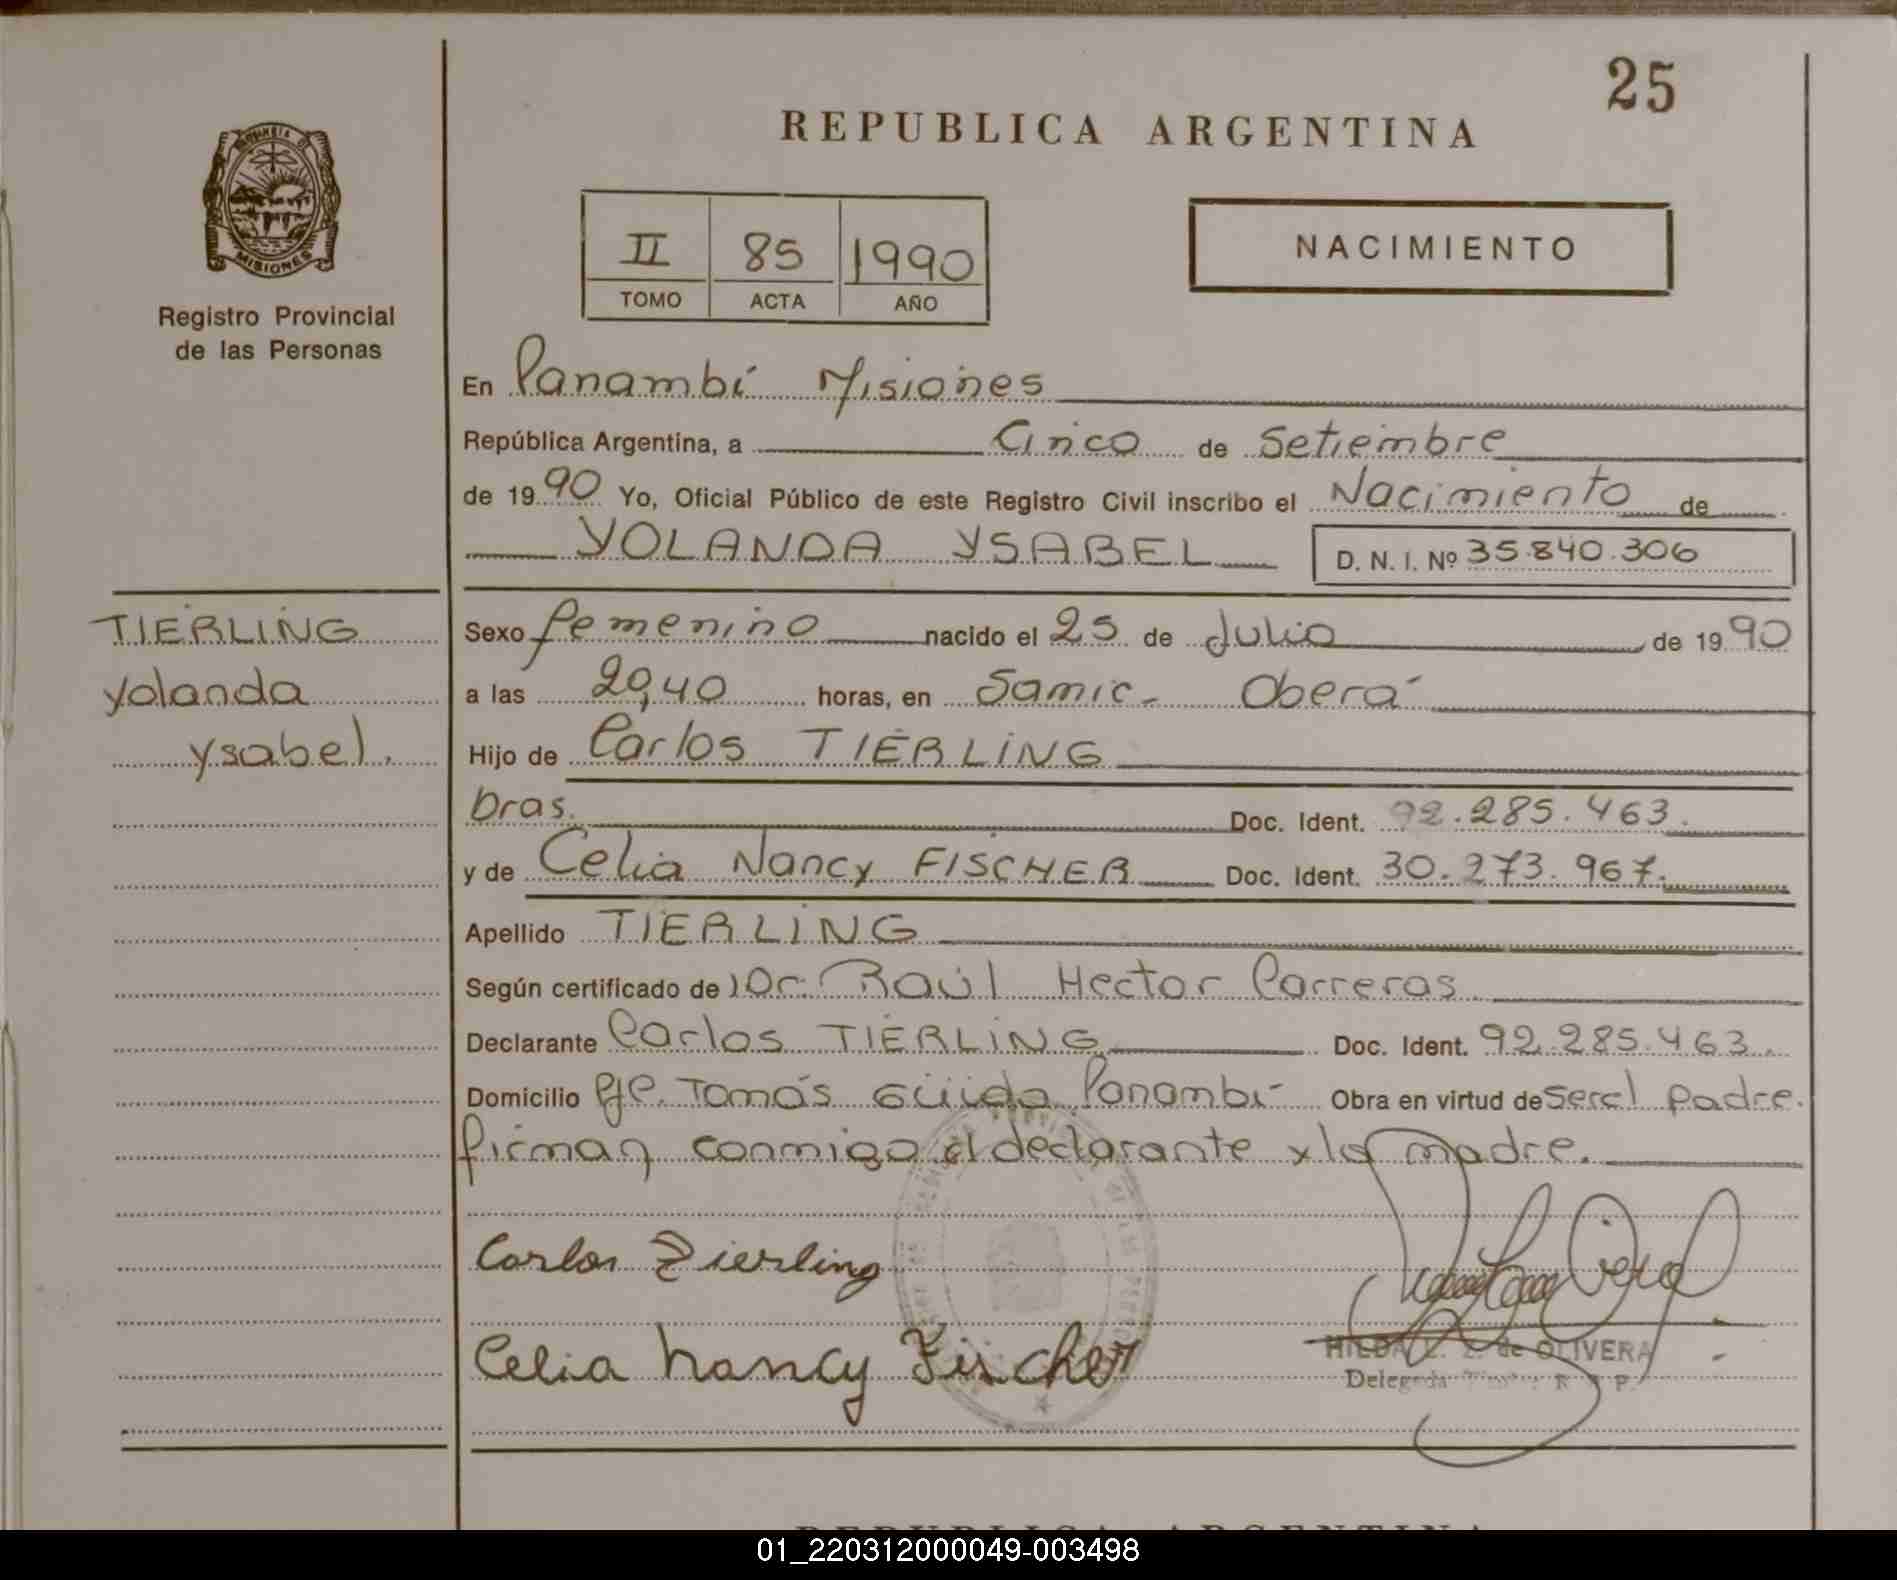 25
REPUBLICA ARGENTINA
II 85 1990
TOMO ACTA AÑO
NACIMIENTO
MISIONES
Registro Provincial
de las Personas
En Panambí Misiones
República Argentina, a Cinco de Setiembre
de 1990 Yo, Oficial Público de este Registro Civil inscribo el Nacimiento de
YOLANDA YSABEL D. N. I. Nº 35.840.306
TIERLING
Yolanda
Ysabel.
Sexo femenino nacido el 25 de Julio de 1990
a las 20,40 horas, en Samic - Oberá
Hijo de Carlos TIERLING
bras. Doc. Ident. 92.285.463.
y de Celia Nancy FISCHER Doc. Ident. 30.273.967.
Apellido TIERLING
Según certificado de Dr. Raúl Hector Carreras
Declarante Carlos TIERLING Doc. Ident. 92.285.463.
Domicilio Pje. Tomás Güido Panambí Obra en virtud de ser el padre.
firman conmigo el declarante y la madre.
Carlos Tierling
Celia Nancy Fischer
HILDA L. Z. de OLIVERA
Delegada R P
REPUBLICA ARGENTINA
01_220312000049-003498